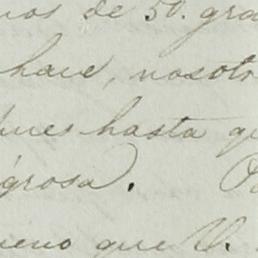 nos de 50. gra
hace, nosotr
ques hasta qu
igrosa.
ueno que V.